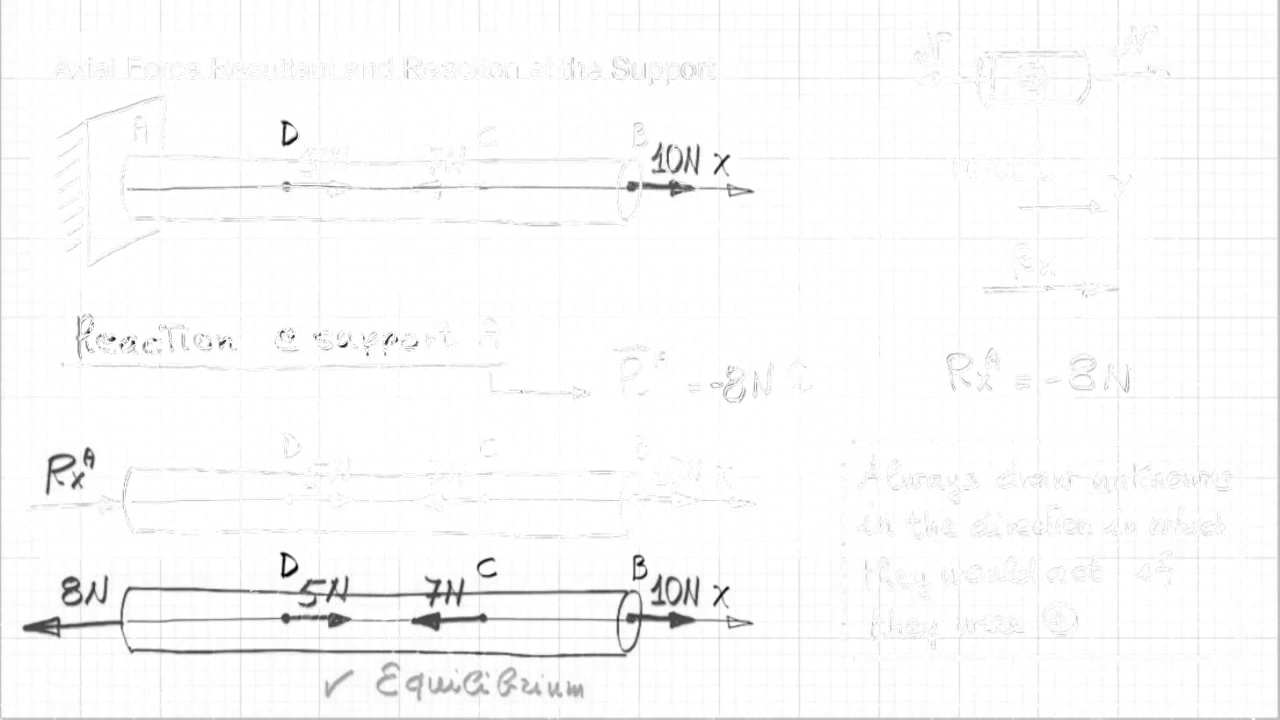 Axial Force Resultant and Reaction at the Support
A D 5N 7N C B 10N x
Reaction @ support A
= -8N
RxA = -8N
RxA D 5N C B 10N x
Always draw unknowns
in the direction in which
they would act if
they were +
8N D 5N 7N C B 10N x
✓ Equilibrium